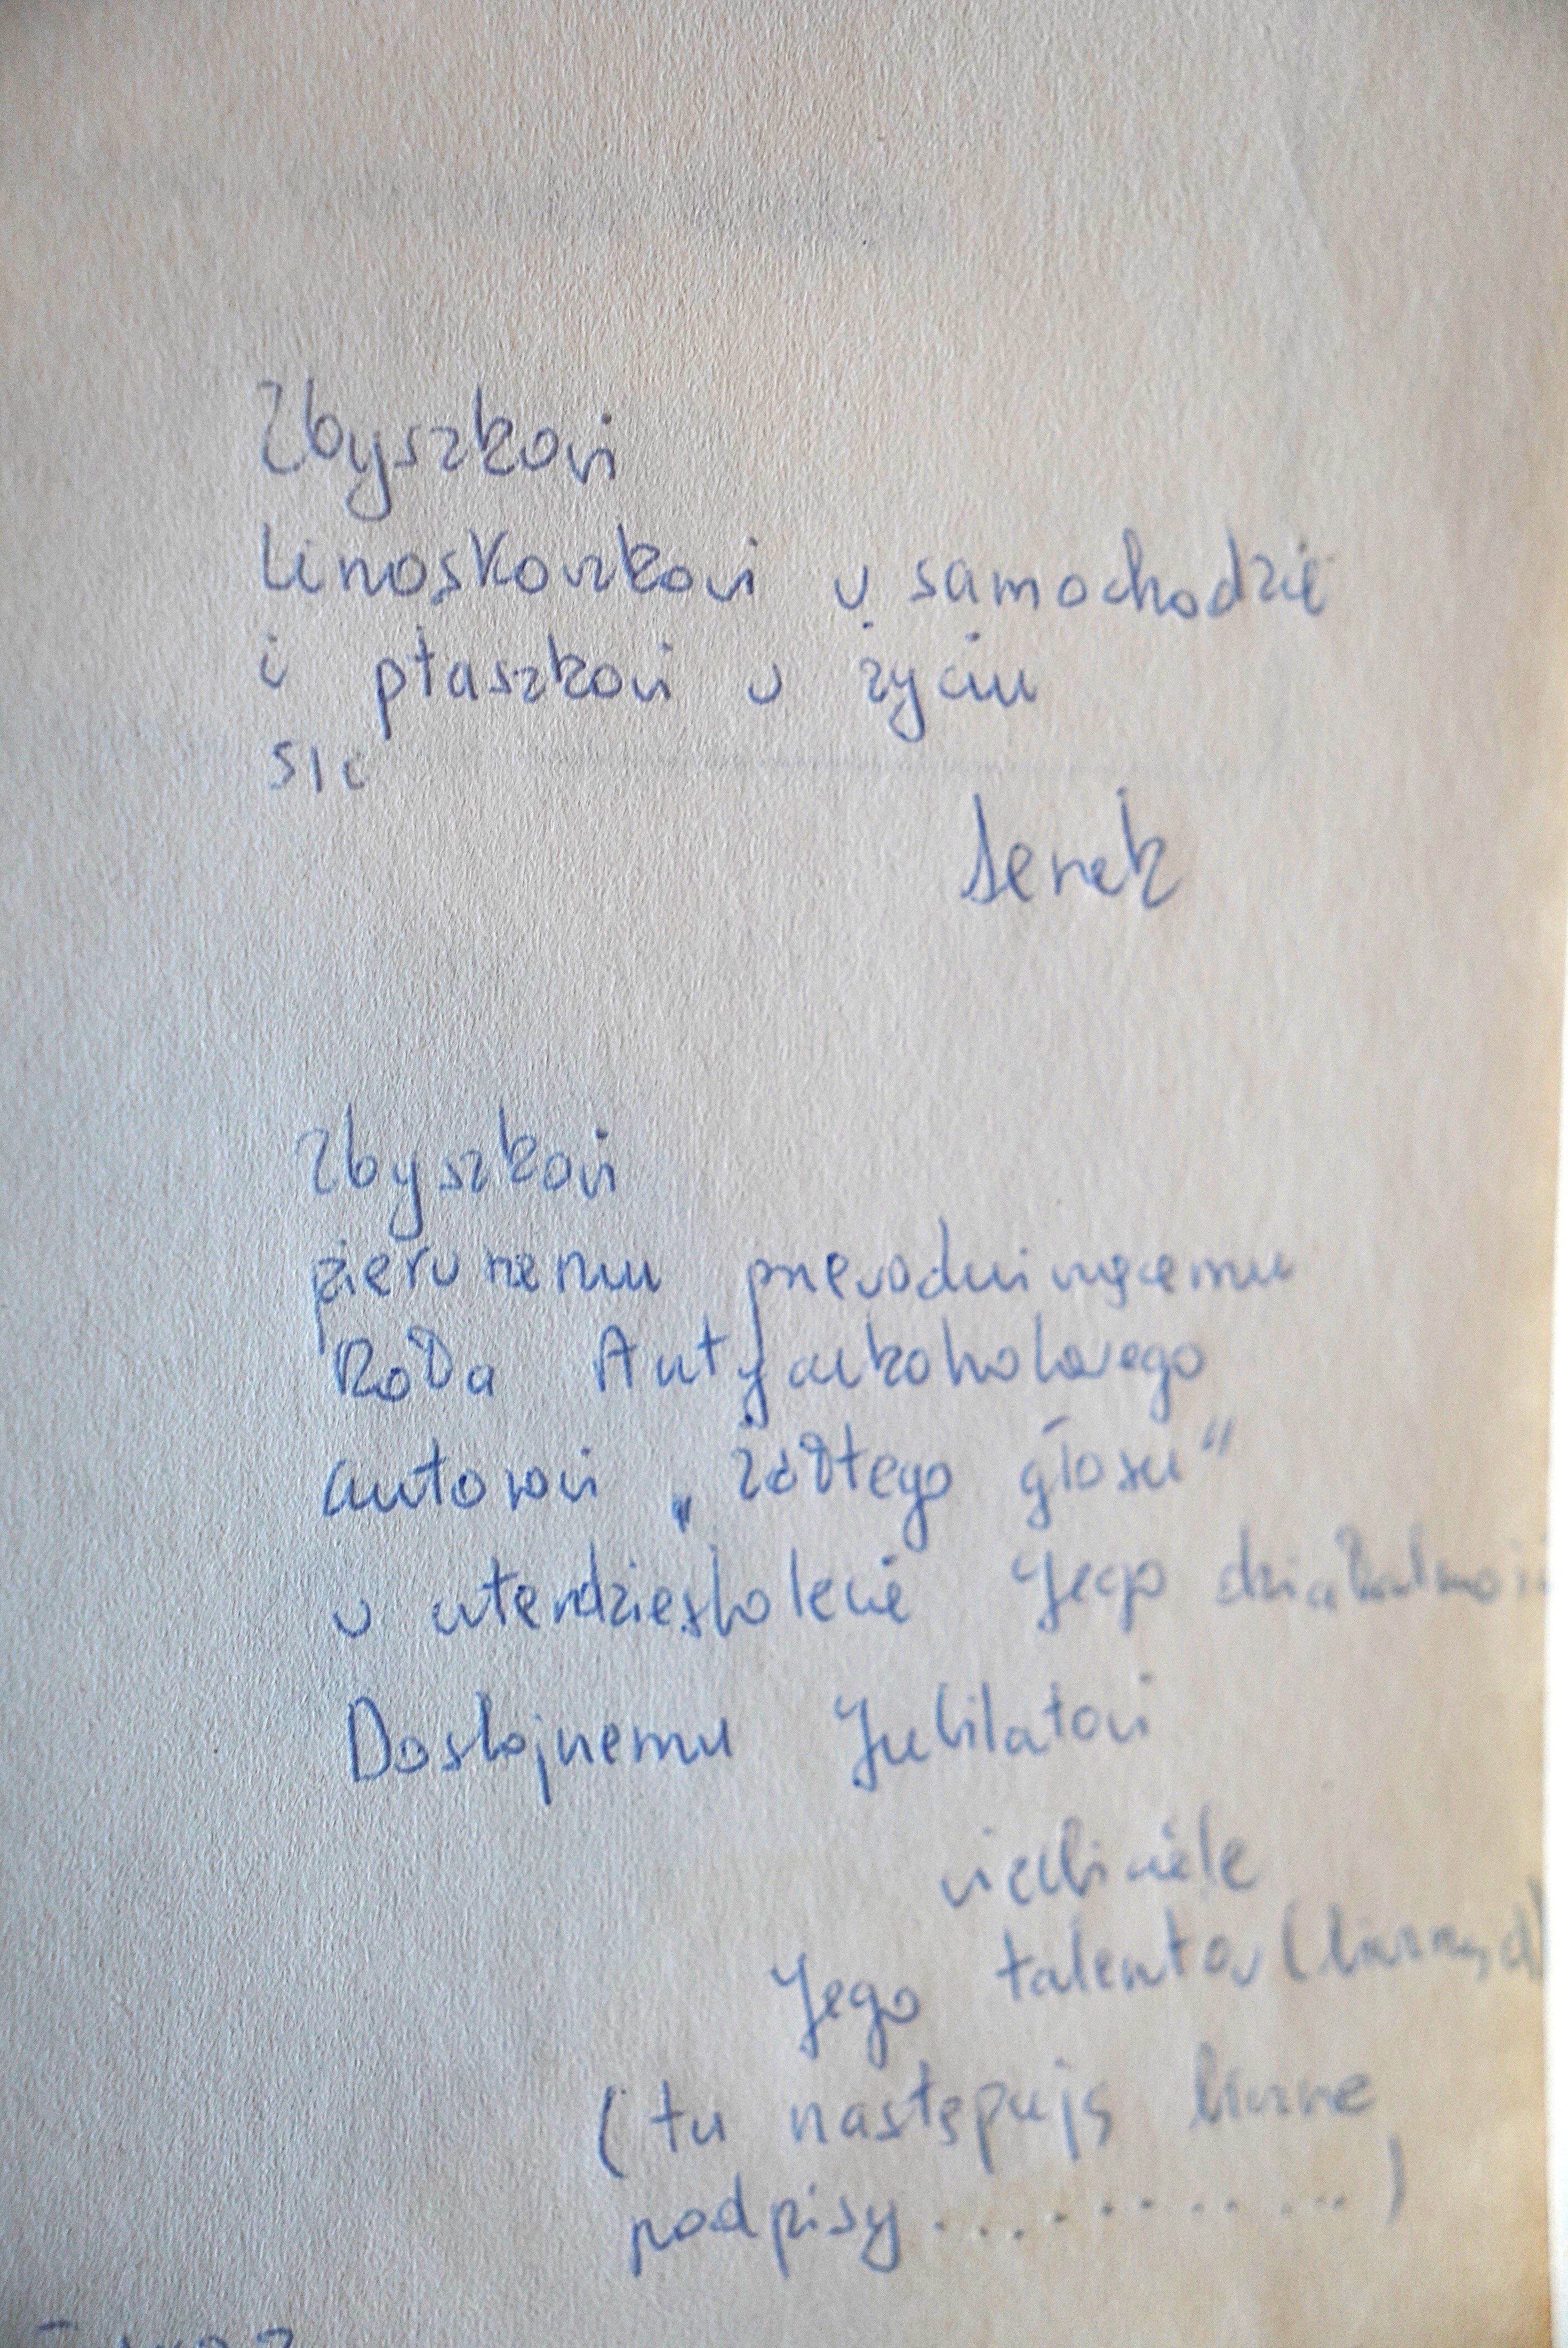 Zbyszkowi
Linoskoczkowi w samochodzie
i ptaszkowi w życiu
sic
Zbyszkowi
pierwszemu przewodniczącemu
Koła Antyalkoholowego
autorowi „Żółtego głosu"
w czterdziestolecie Jego działalności
Dostojnemu Jubilatowi
wielbiciele
Jego talentów (licznych)
(tu następują liczne
podpisy ............)